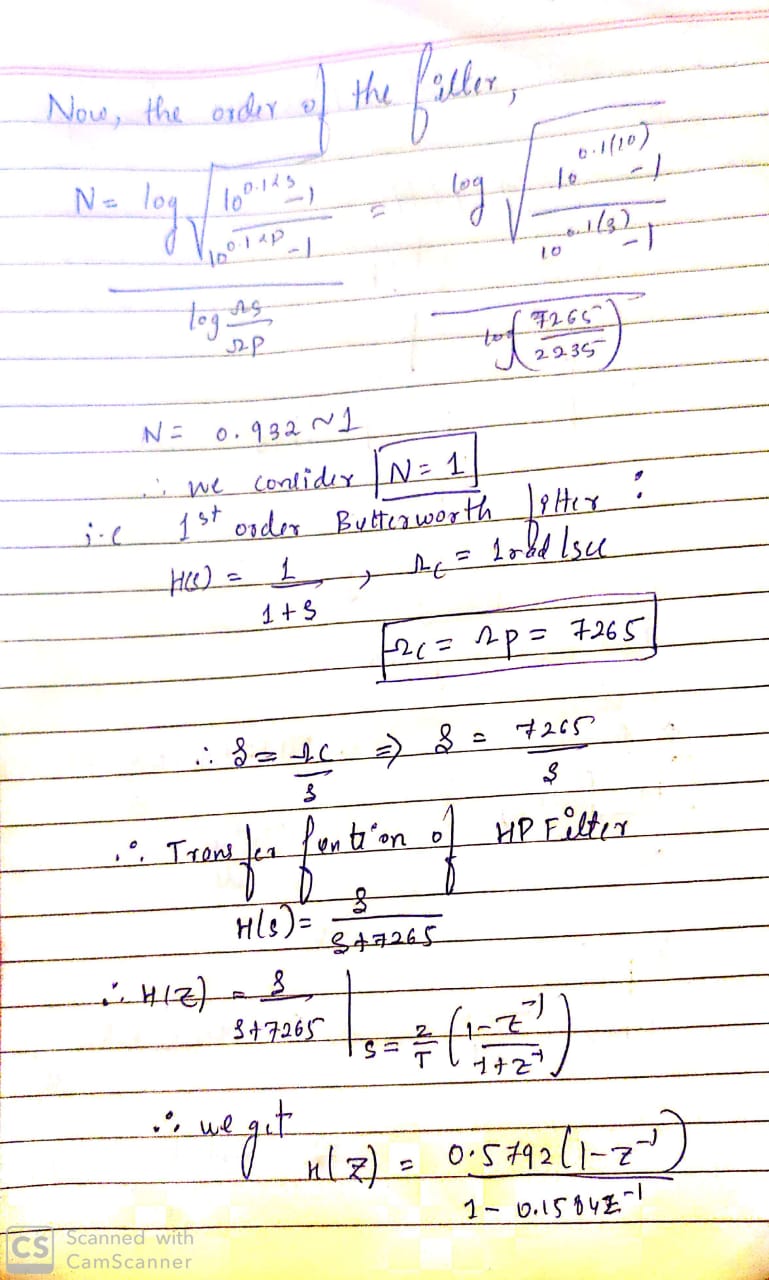 Now, the order of the filter,
N = log √(10^0.1αs -1 / 10^0.1αp -1) / log Ωs/Ωp = log √(10^0.1(10) -1 / 10^0.1(3) -1) / log (7265/2235)
N = 0.932 ~ 1
∴ we consider N = 1
i.e 1st order Butterworth filter :
H(s) = 1/(1+s) , Ωc = 1 rad/sec
Ωc = Ωp = 7265
∴ s = Ωc/s ⇒ s = 7265/s
∴ Transfer funtion of HP Filter
H(s) = s/(s+7265)
∴ H(Z) = s/(s+7265) | s = 2/T ((1-z^-1)/(1+z^-1))
∴ we get
H(Z) = 0.5792(1-z^-1) / (1-0.1584z^-1)
CS Scanned with
CamScanner